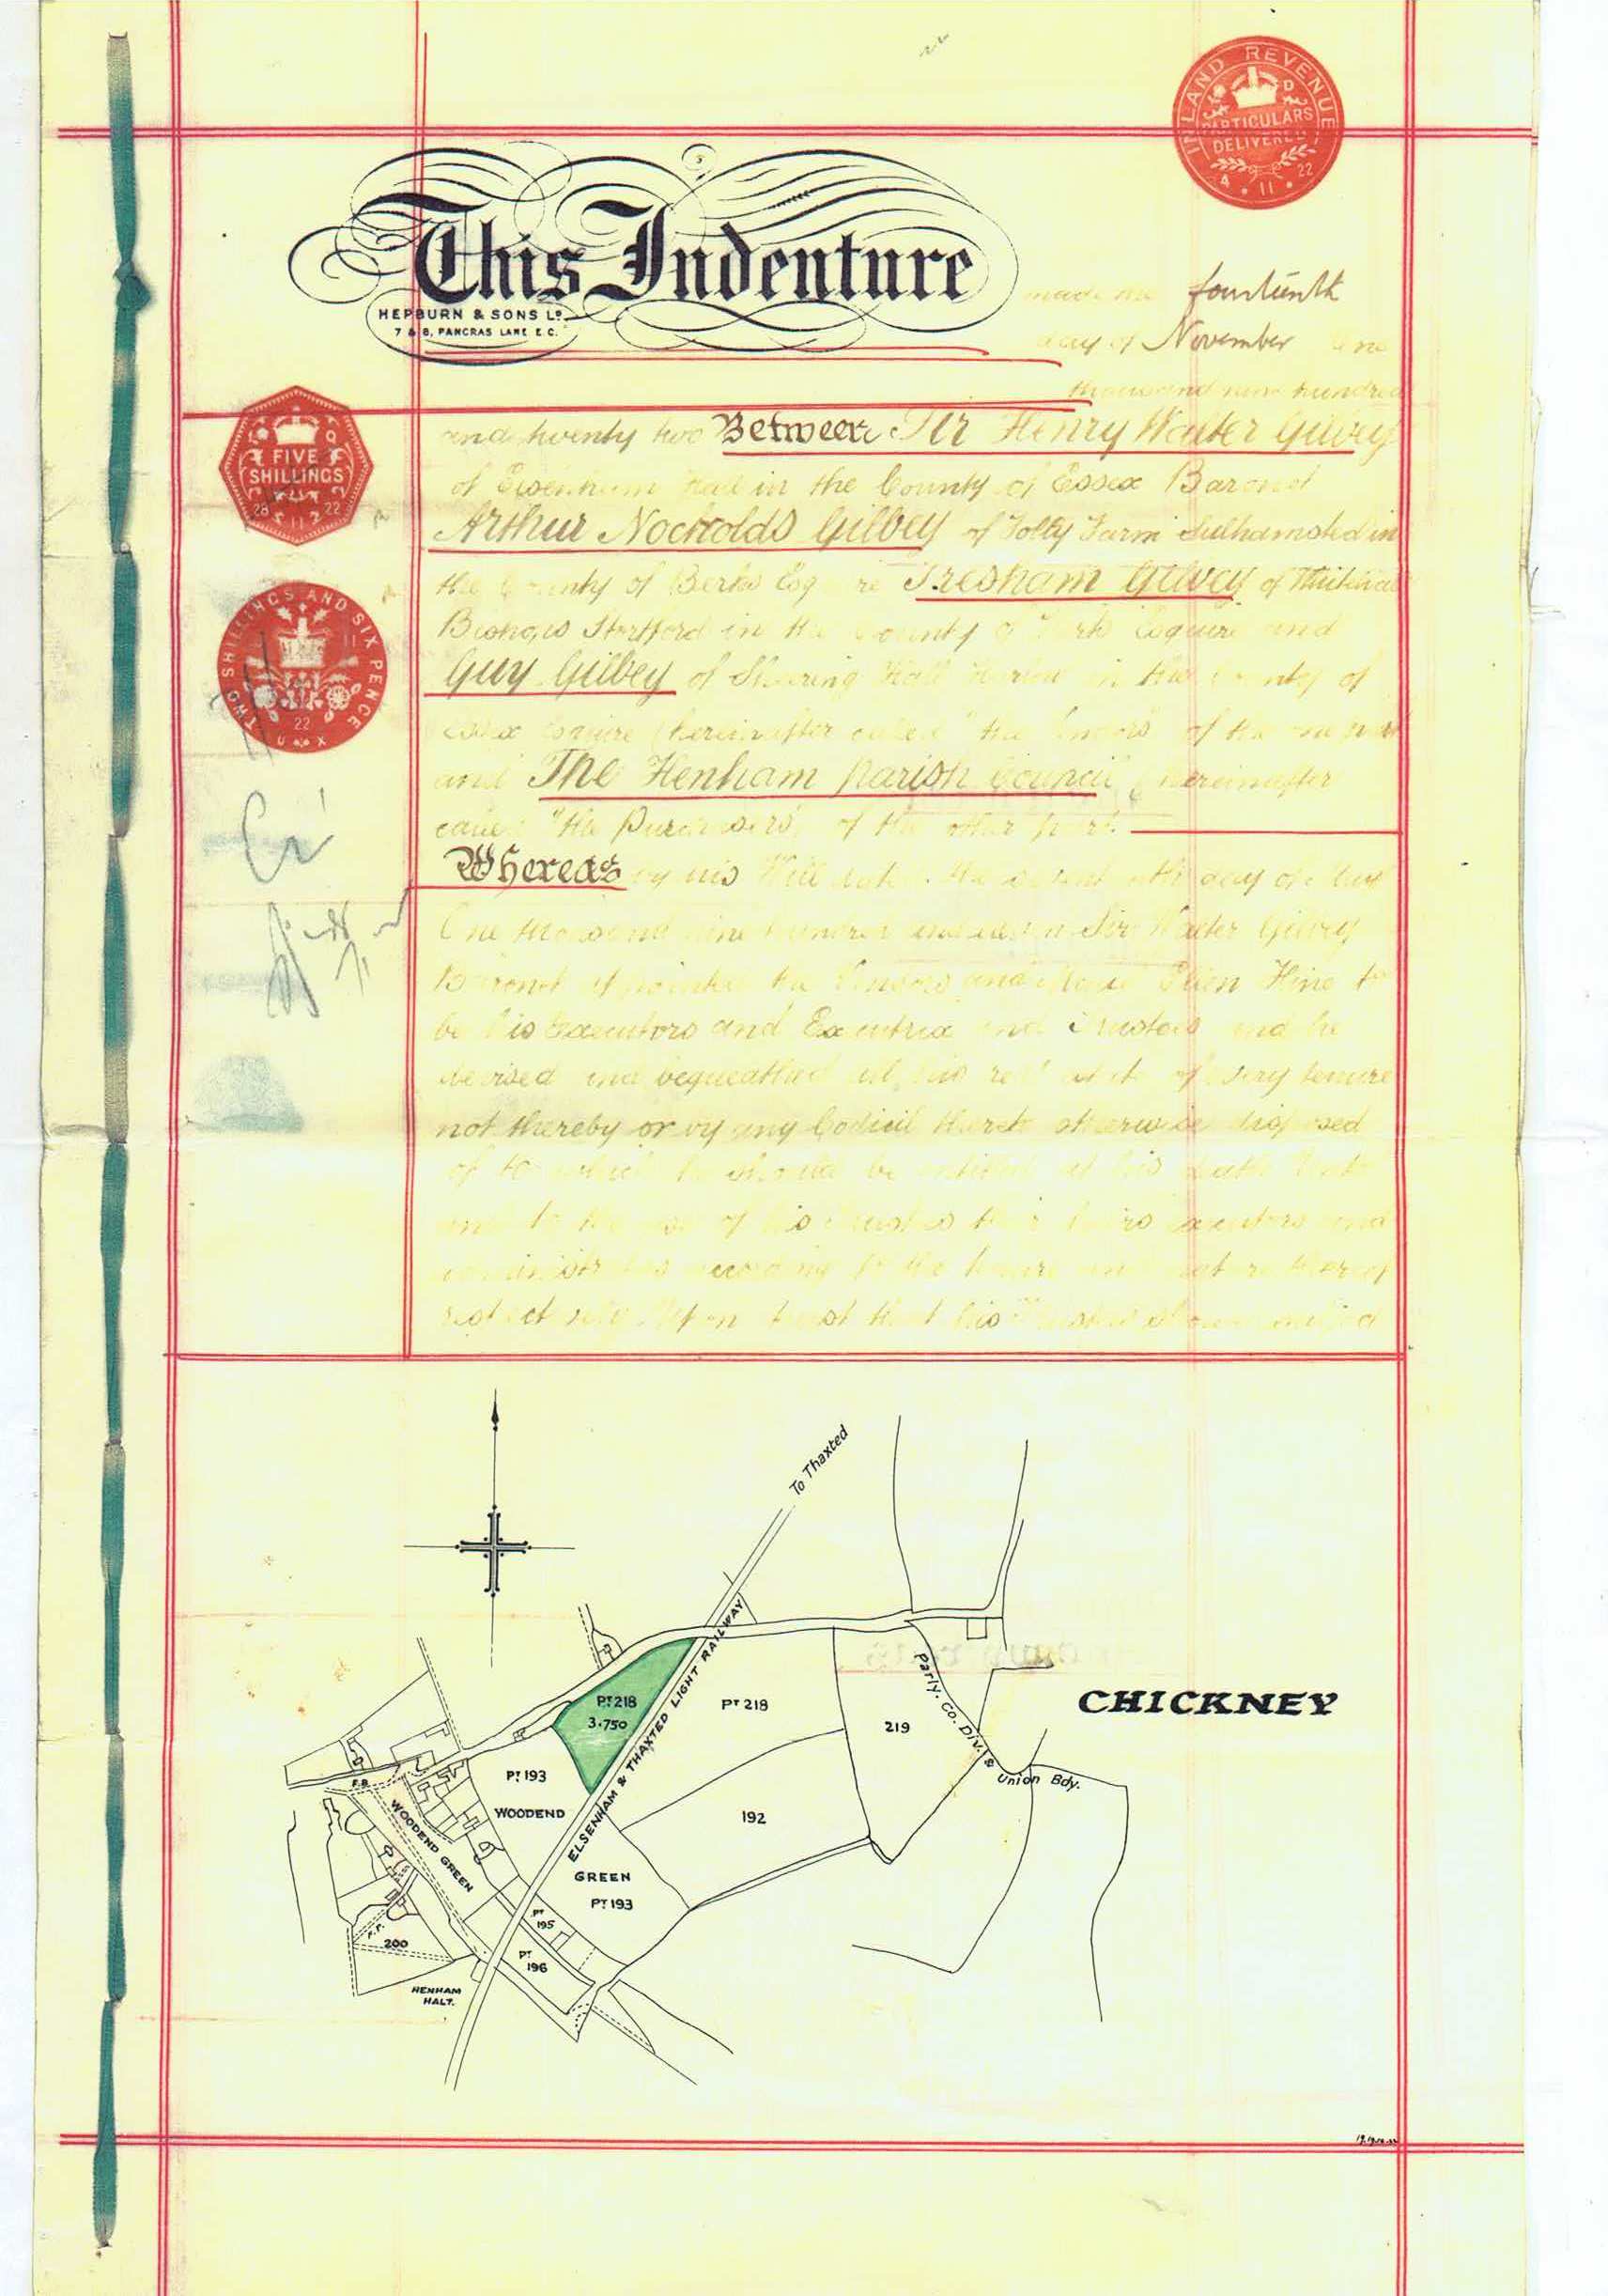 INLAND REVENUE
PARTICULARS
DELIVERED
4 · 11 · 22
This Indenture
HEPBURN & SONS Ld
7 & 8, PANCRAS LANE E.C.
made the fourteenth
day of November One
thousand nine hundred
and twenty two Between Sir Henry Walter Gilbey
of Elsenham Hall in the County of Essex Baronet
Arthur Nockolds Gilbey of Folly Farm Sulhamsted in
the County of Berks Esquire Tresham Gilbey of Whitehall
Bishops Stortford in the County of Herts Esquire and
Guy Gilbey of Sheering Hall Harlow in the County of
Essex Esquire (hereinafter called "the Vendors" of the one part
and The Henham Parish Council (hereinafter
called "the Purchasers" of the other part.
Whereas by his Will dated the day of
One thousand nine hundred and Sir Walter Gilbey
Baronet appointed the Vendors and Ellen Hine to
be his Executors and Executrix and Trustees and he
devised and bequeathed all his real estate of every tenure
not thereby or by any Codicil thereto otherwise disposed
of to which he should be entitled at his death Unto
and to the use of his Trustees their heirs executors and
administrators according to the tenure and nature thereof
respectively Upon trust that his Trustees should
FIVE
SHILLINGS
TWO SHILLINGS AND SIX PENCE
22
To Thaxted
ELSENHAM & THAXTED LIGHT RAILWAY
PT 218
3·750
PT 218
219
Parly. Co. Div. & Union Bdy.
CHICKNEY
PT 193
WOODEND
192
F.B.
WOODEND GREEN
GREEN
PT 193
PT
195
PT
196
F.F.
200
HENHAM
HALT.